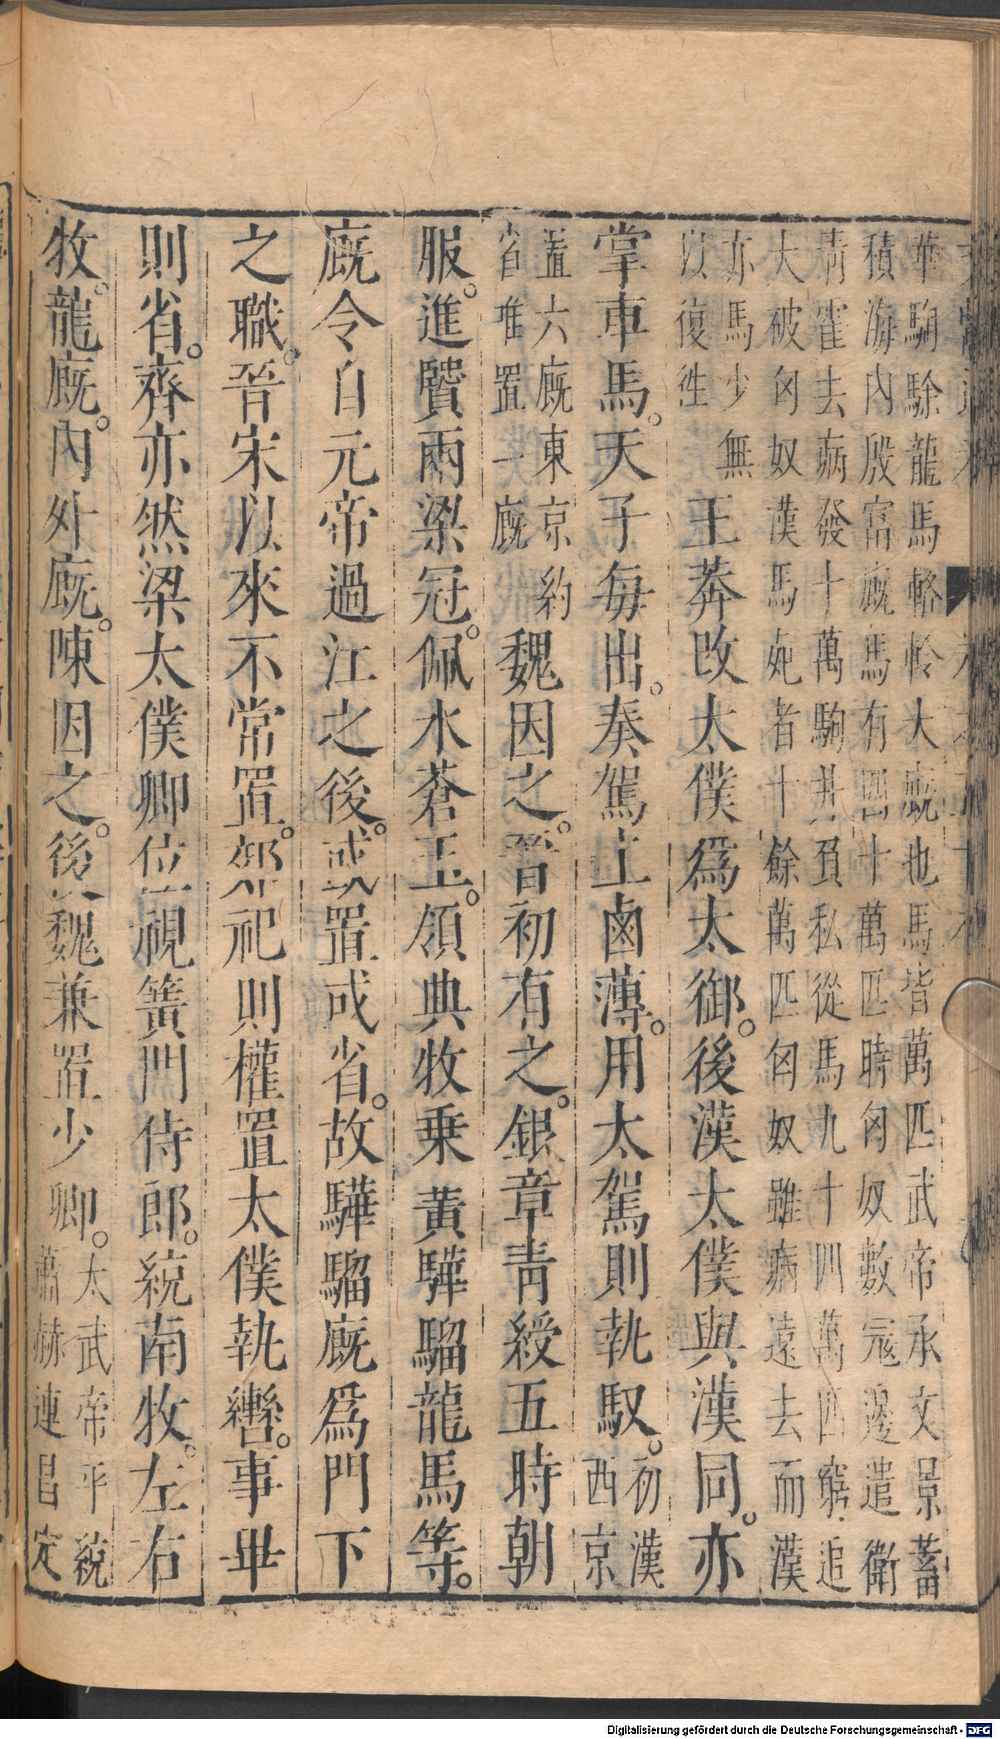 華駒騟龍馬輅軨大廐也馬皆萬匹武帝承文景蓄
積海內殷富廐馬有四十萬匹時匈奴數寇邊遣衛
青霍去病發十萬騎并負私從馬九十四萬匹窮追
大破匈奴漢馬死者十餘萬匹匈奴雖病遠去而漢
亦馬少無
以復徃
王莽改太僕爲太御後漢太僕與漢同亦
掌車馬天子每出奏駕上鹵薄用太駕則執馭
初漢
西京
置六廐東京約
省唯置一廐
魏因之晉初有之銀章青綬五時朝
服進賢兩梁冠佩水蒼玉領典牧乗黃驊騮龍馬等
廐令自元帝過江之後或置或省故驊騮廐爲門下
之職晉宋以來不常置郊祀則權置太僕執轡事畢
則省齊亦然梁太僕卿位視黃門侍郎統南牧左右
牧龍廐內外廐陳因之後魏兼置少卿
太武帝平統
蕭赫連昌定
Digitalisierung gefördert durch die Deutsche Forschungsgemeinschaft - DFG